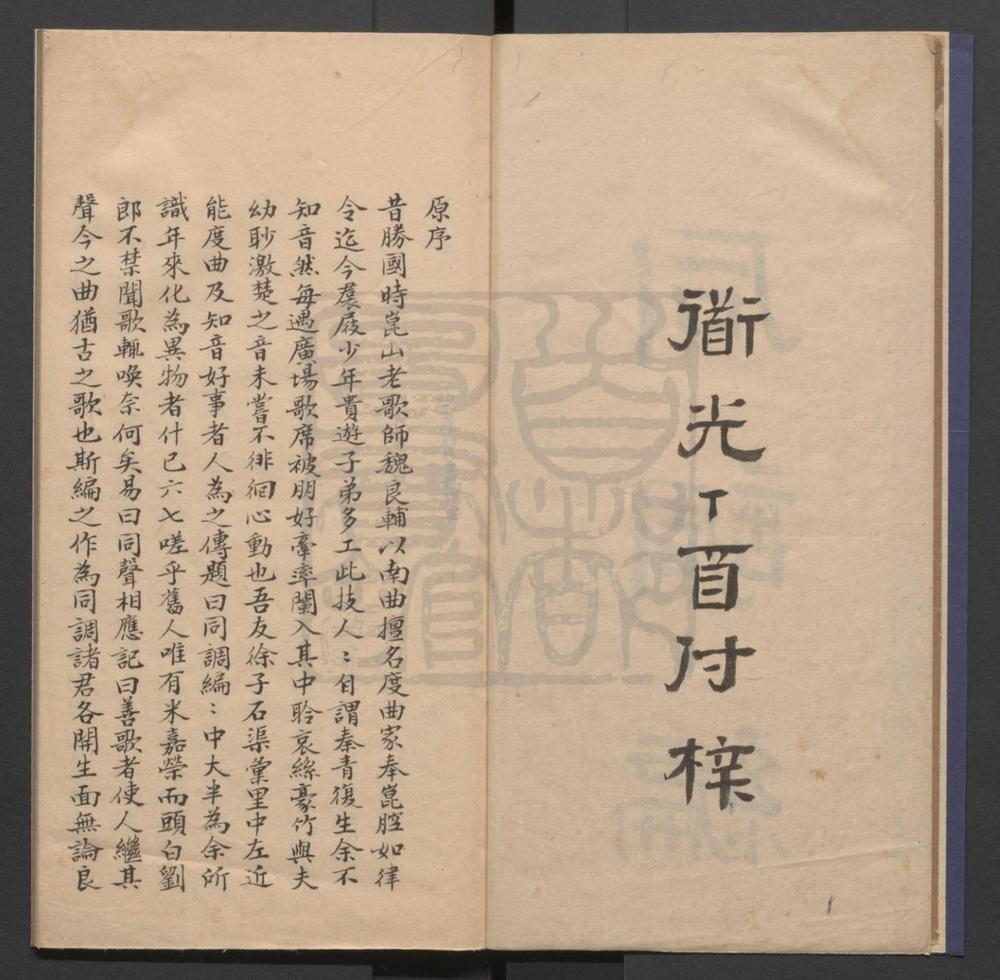 衟光丁酉付梓
原序
昔勝國時崑山老歌師魏良輔以南曲擅名度曲家奉崑腔如律
令迄今裙屐少年貴遊子弟多工此技人：自謂秦青復生余不
知音然每遇廣場歌席被朋好牽率闌入其中聆哀絲豪竹與夫
幼眇激楚之音未嘗不徘徊心動也吾友徐子石渠彙里中左近
能度曲及知音好事者人為之傳題曰同調編：中大半為余所
識年來化為異物者什已六七嗟乎舊人唯有米嘉榮而頭白劉
郎不禁聞歌輒喚奈何矣易曰同聲相應記曰善歌者使人繼其
聲今之曲猶古之歌也斯編之作為同調諸君各開生面無論良